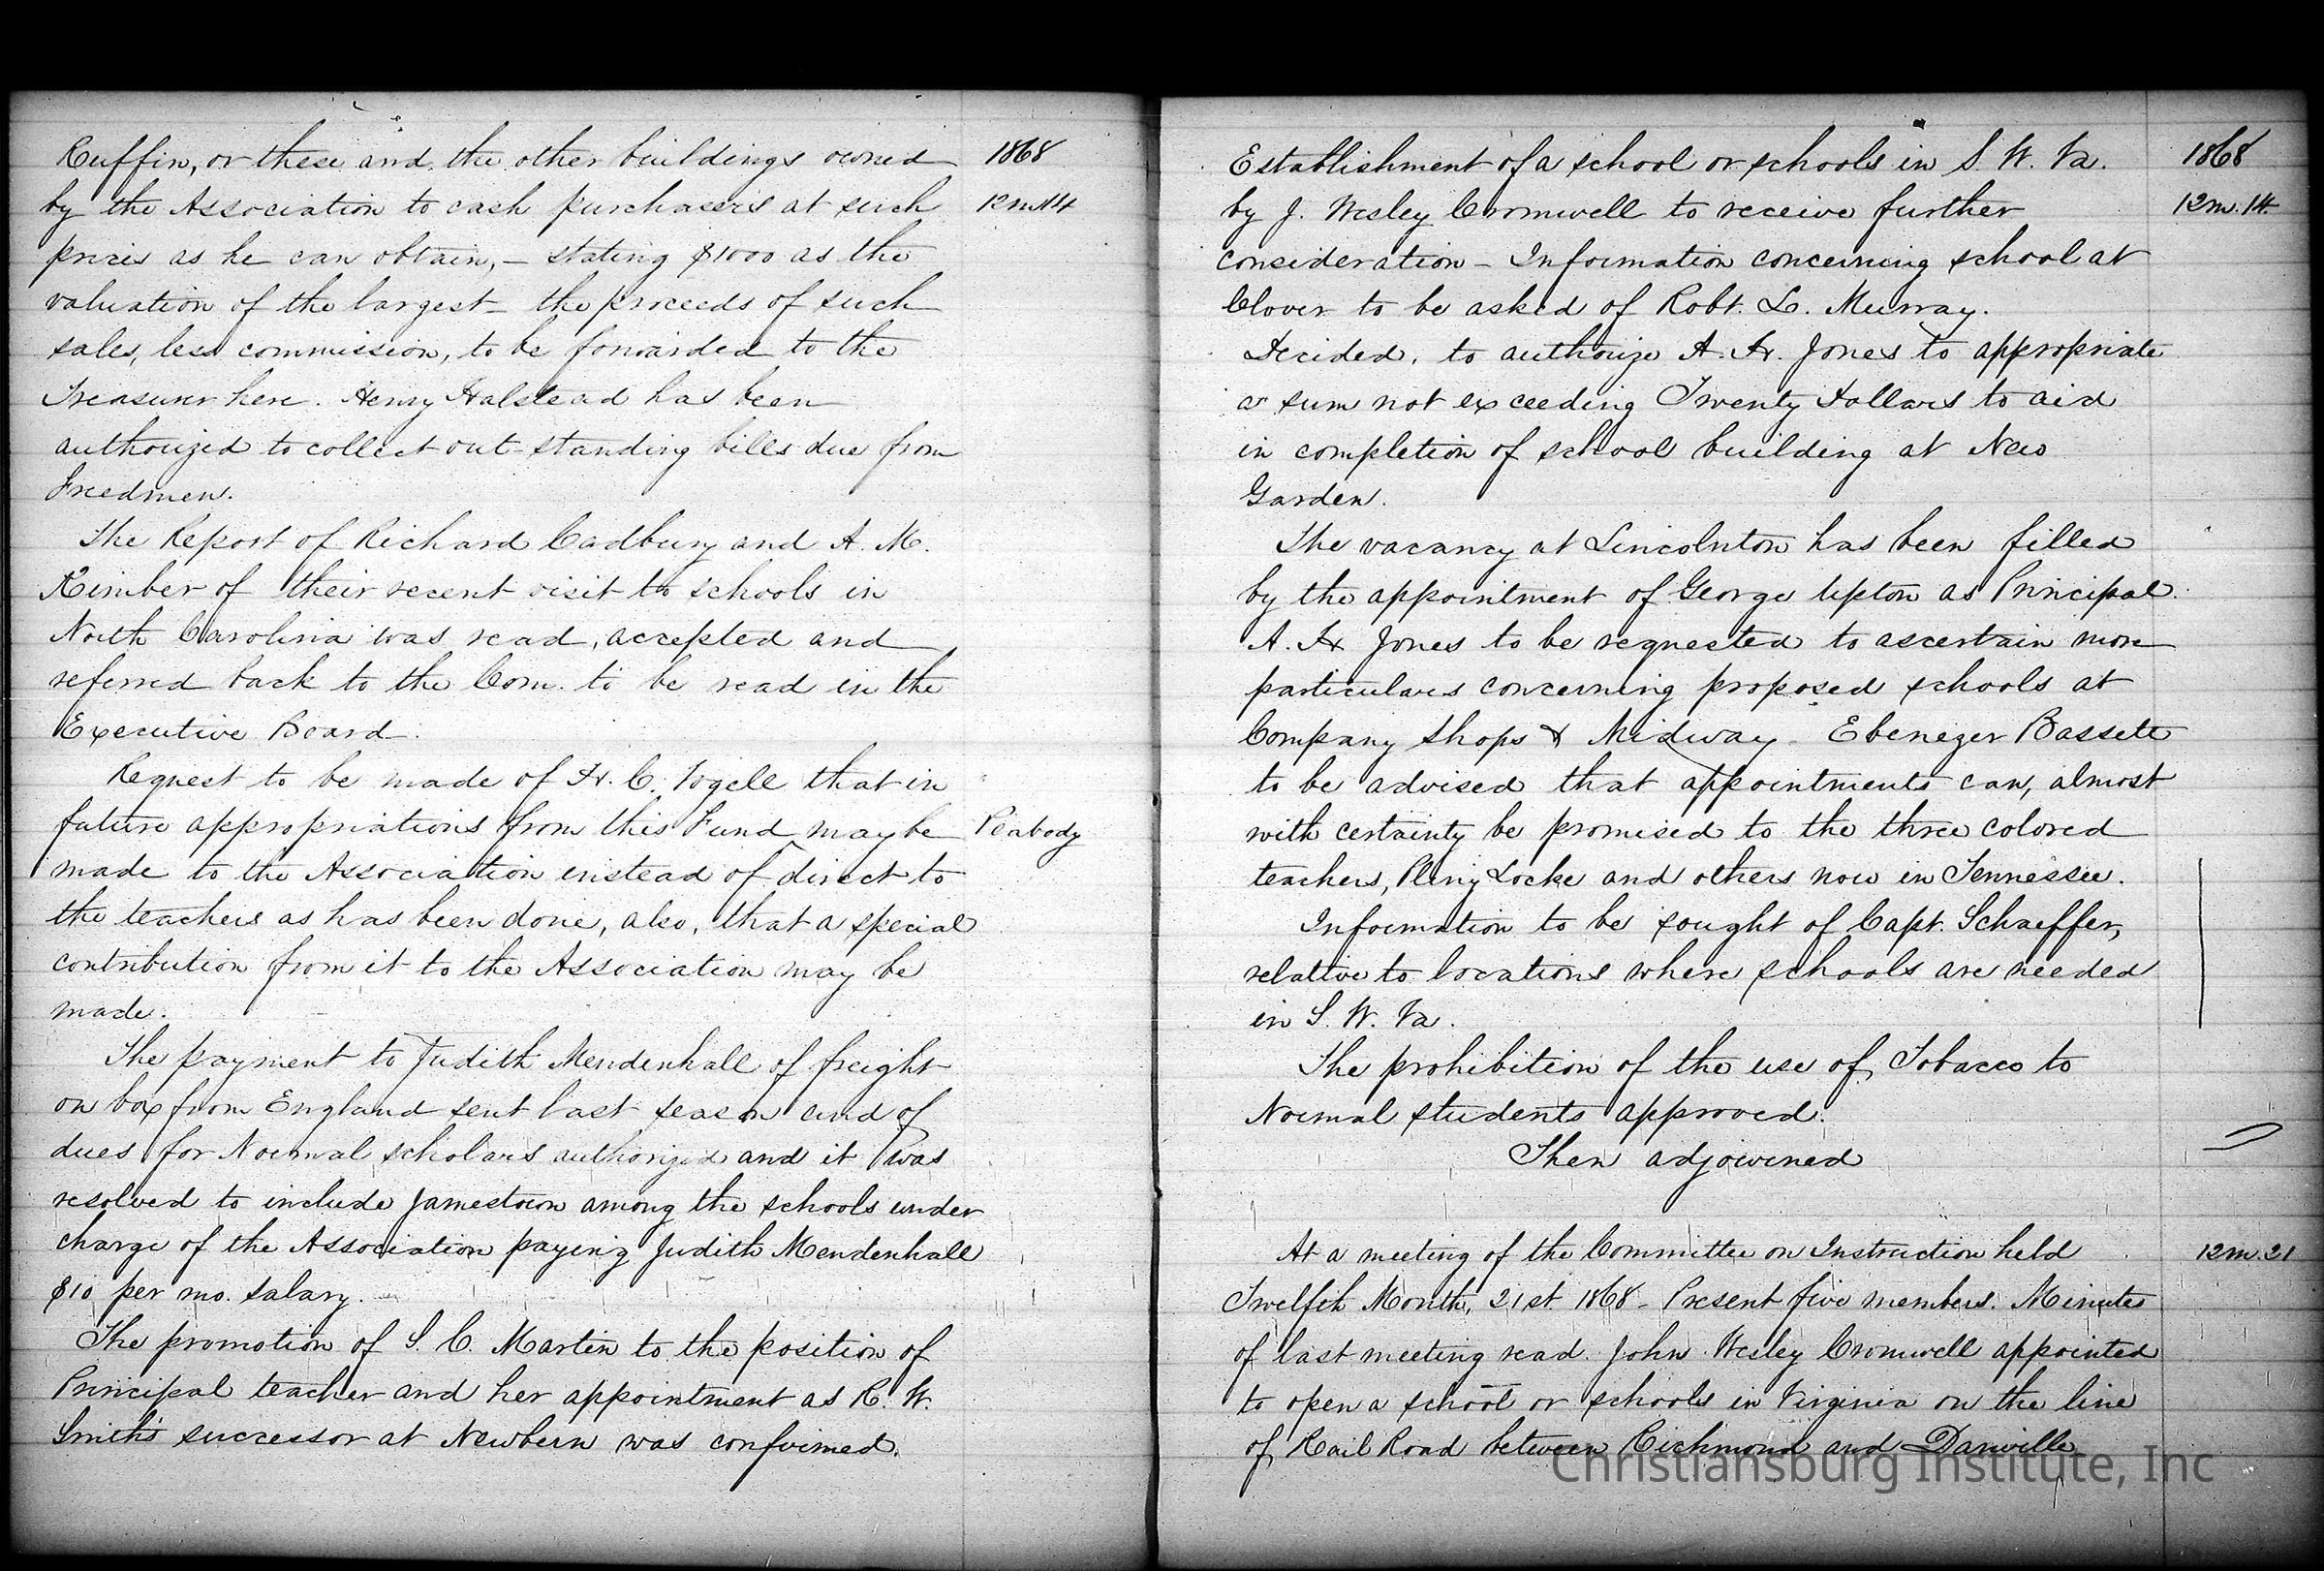 Ruffin, or these and the other buildings owned
1868
by the Association to cash purchasers at such
12m 14
prices as he can obtain, — stating $1000 as the
valuation of the largest — the proceeds of such
sales, less commission, to be forwarded to the
Treasurer here. Henry Halstead has been
authorized to collect out-standing bills due from
Freedmen.
The Report of Richard Cadbury and A. M.
Kimber of their recent visit to schools in
North Carolina was read, accepted and
referred back to the Com. to be read in the
Executive Board.
Request to be made of H. C. Vogell that in
future appropriations from this Fund may be
Peabody
made to the Association instead of direct to
the teachers as has been done, also, that a special
contribution from it to the Association may be
made.
The payment to Judith Mendenhall of freight
on box from England sent last season and of
dues for Normal scholars authorized and it was
resolved to include Jamestown among the schools under
charge of the Association paying Judith Mendenhall
$10 per mo. salary.
The promotion of S. C. Martin to the position of
Principal teacher and her appointment as R. W.
Smith's successor at Newbern was confirmed.
Establishment of a school or schools in S. W. Va.
1868
by J. Wesley Cromwell to receive further
12m. 14.
consideration — Information concerning school at
Clover to be asked of Robt. L. Murray.
Decided, to authorize A. H. Jones to appropriate
a sum not exceeding Twenty Dollars to aid
in completion of school building at New
Garden.
The vacancy at Lincolnton has been filled
by the appointment of George Upton as Principal.
A. H. Jones to be requested to ascertain more
particulars concerning proposed schools at
Company Shops & Midway — Ebenezer Bassett
to be advised that appointments can, almost
with certainty be promised to the three colored
teachers, Pliny Locke and others now in Tennessee.
Information to be sought of Capt. Schaeffer,
relative to locations where schools are needed
in S. W. Va.
The prohibition of the use of Tobacco to
Normal students approved.
Then adjourned
At a meeting of the Committee on Instruction held
12m. 21
Twelfth Month, 21st 1868 — Present five members. Minutes
of last meeting read. John Wesley Cromwell appointed
to open a school or schools in Virginia on the line
of Rail Road between Richmond and Danville
Christiansburg Institute, Inc